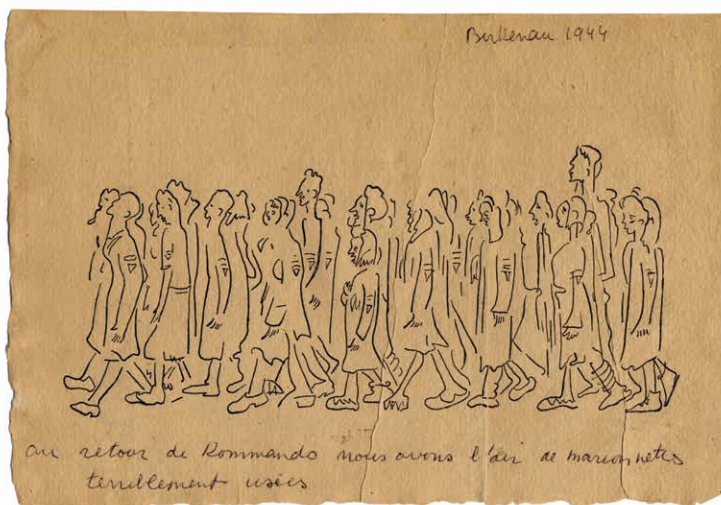 Birkenau 1944
au retour de Kommando nous avons l'air de marionnettes
terriblement usées